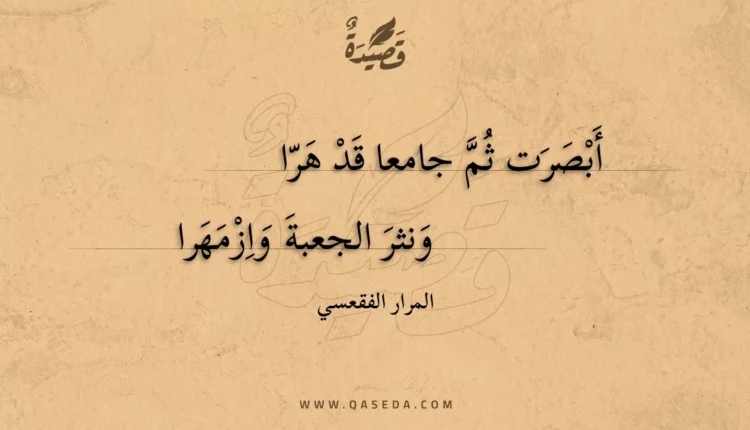 قَصِيْدَةٌ
أَبْصَرَت ثُمَّ جامعا قَدْ هَرّا
وَنثرَ الجعبةَ وَاِزْمَهَرا
المرار الفقعسي
WWW.QASEDA.COM